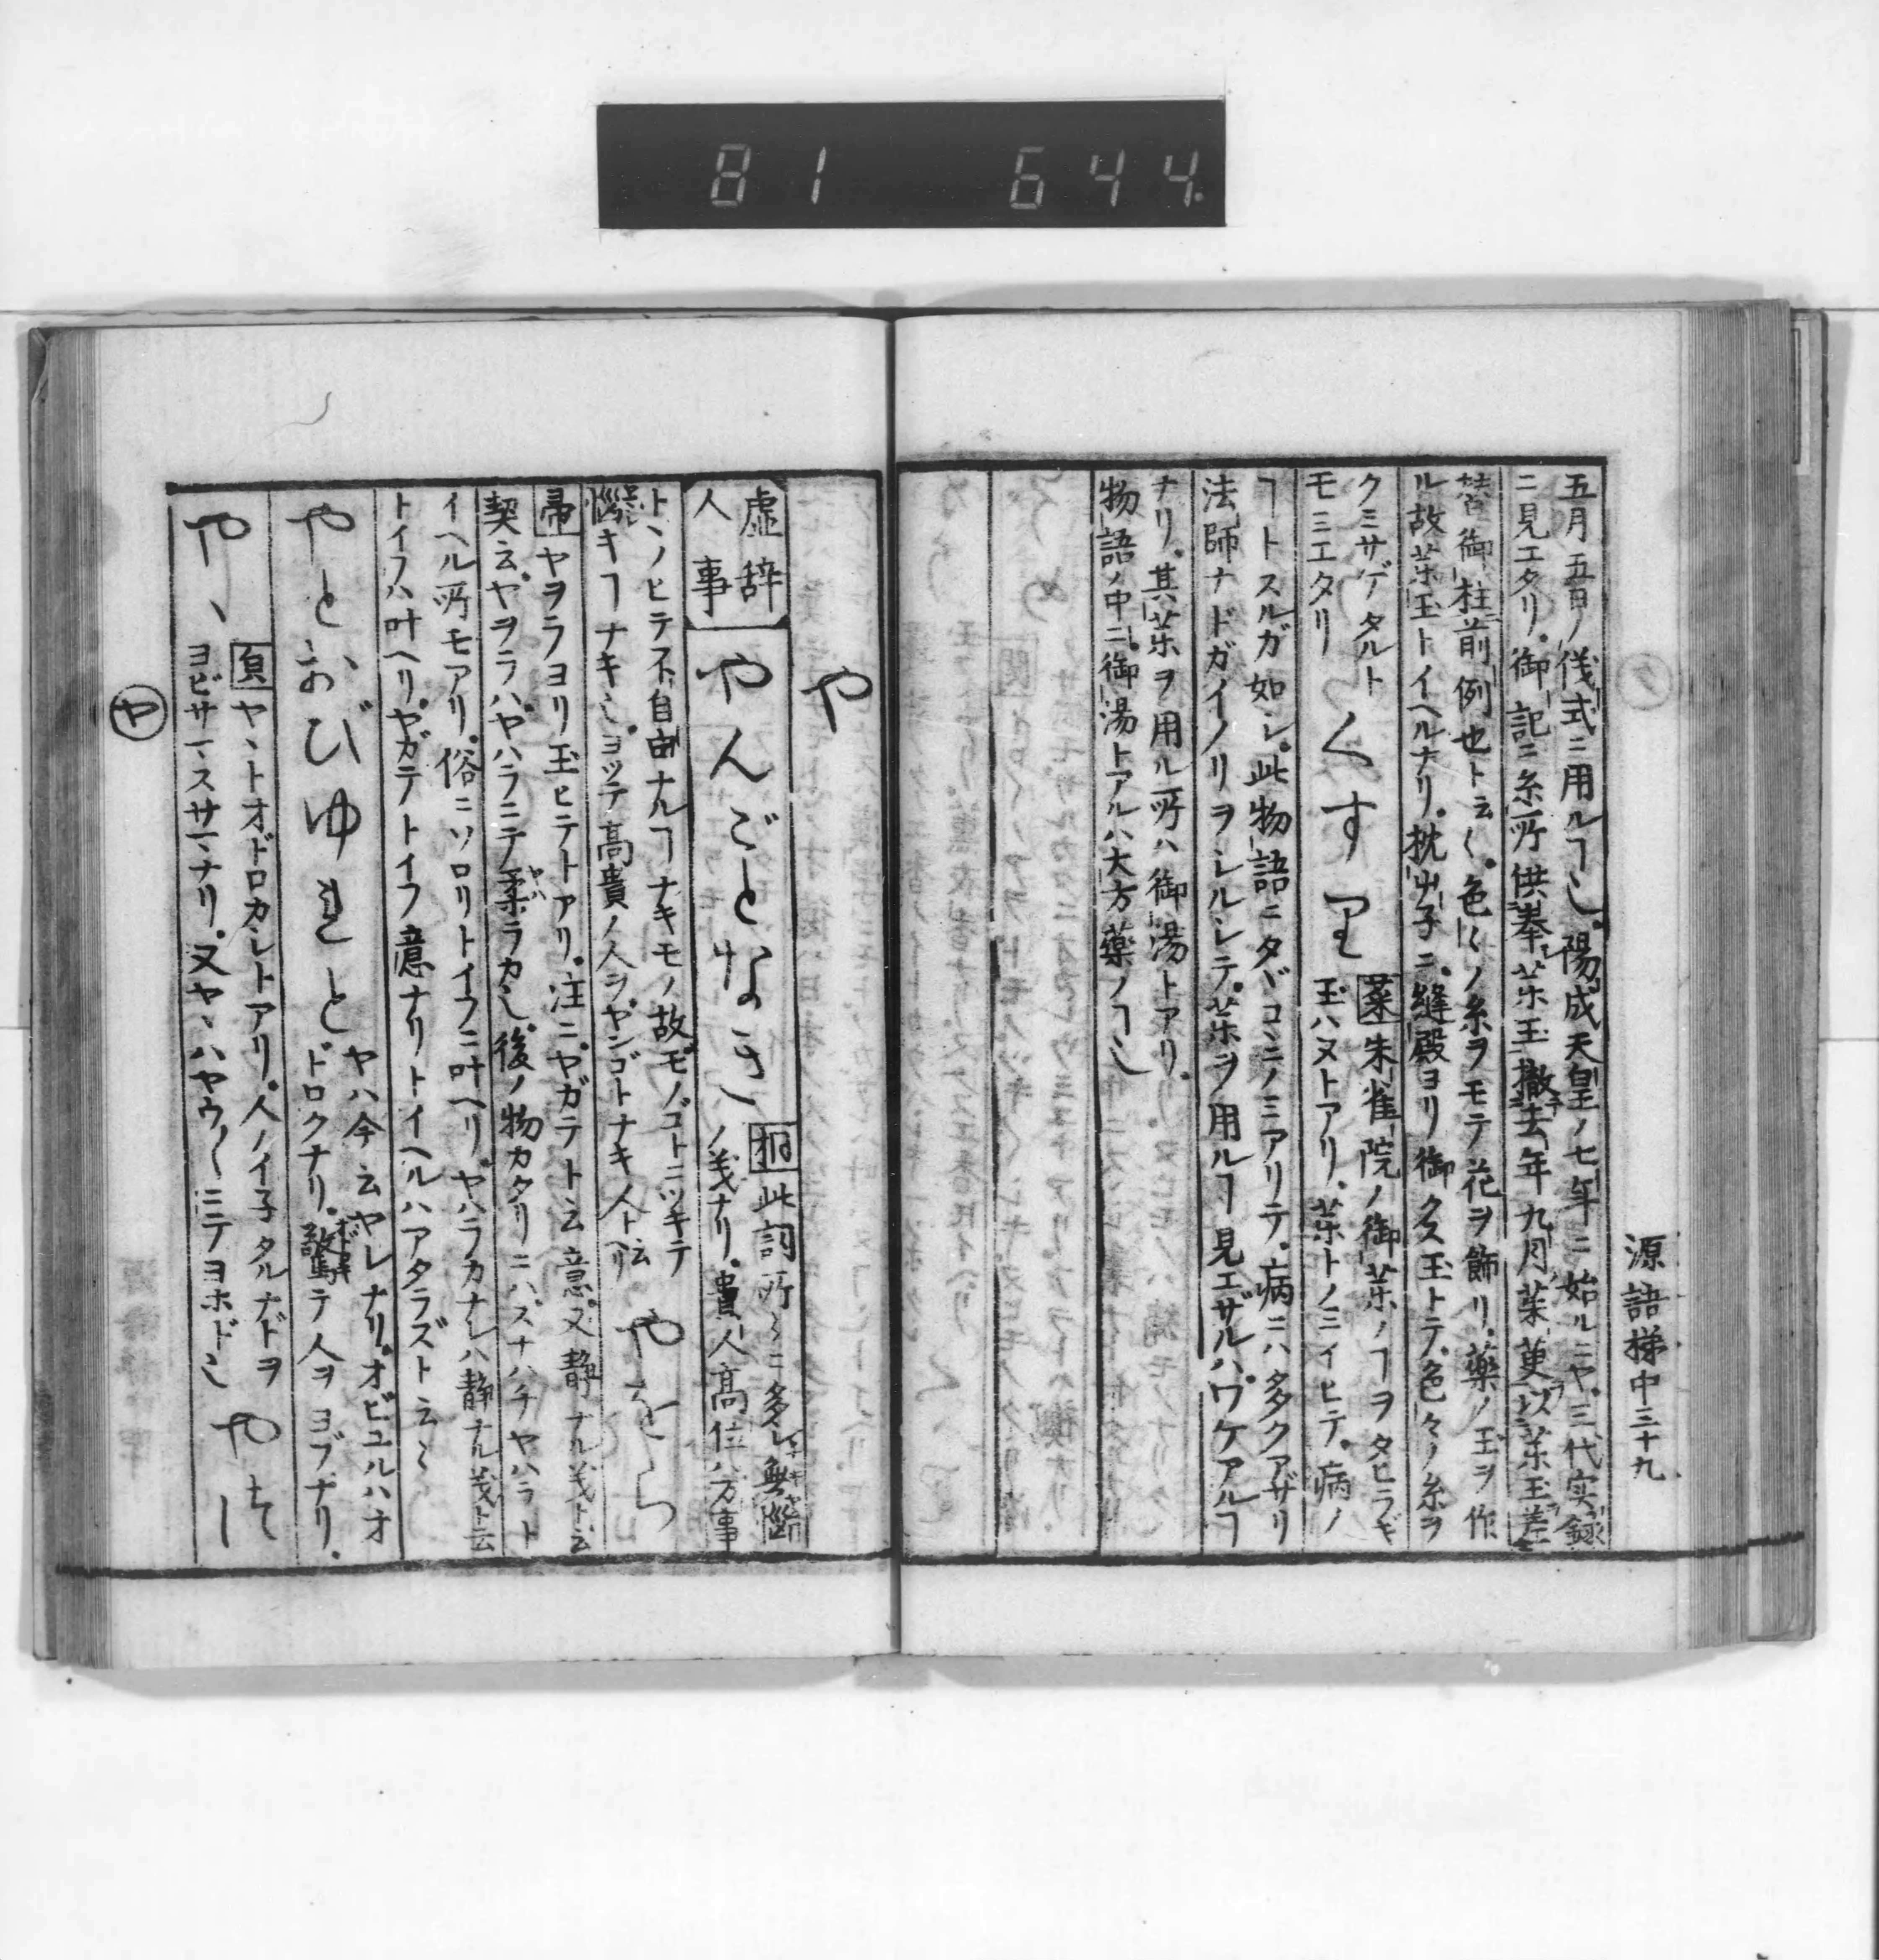 81 644
源語梯中三十九
五月五日ノ儀式ニ用ルヿ乄。陽成天皇ノ七年ニ始ルニヤ。三代実録
ニ見エタリ。御記ニ糸所供奉薬玉撤去年九月茱萸以薬玉差
替御柱前例也ト云〱。色〱ノ糸ヲモテ花ヲ飾リ。薬ノ玉ヲ作
ル故薬玉トイヘルナリ。枕岀子ニ。縫殿ヨリ御クス玉トテ。色々ノ糸ヲ
クミサゲタルト
モミエタリ
くすり
薬 朱雀院ノ御薬ノヿヲタヒラギ
玉ハヌトアリ。薬トノミイヒテ。病ノ
ヿトスルガ如シ。此物語ニタヾコヽニノミアリテ。病ニハ多クアザリ
法師ナドガイノリヲシルシテ。薬ヲ用ルヿ見エザルハ。ワケアルヿ
ナリ。其薬ヲ用ル所ハ御湯トアリ。
物語ノ中ニ御湯トアルハ大方薬ノヿ乄
や
虚辞
人事
やんごとなき
桐 此詞所〱ニ多シ無斷
ノ義ナリ。貴人高位ハ万事
トヽノヒテ不自由ナルヿナキモノ故。モノゴトニツキテ
キヿナキ乄。ヨッテ高貴ノ人ヲ。ヤンゴトナキ人ト云ヘリ
やをら
帚 ヤヲラノヨリ玉ヒテトアリ。注ニ。ヤガテト云意又静ナル義ト云
契云。ヤヲラハ。ヤハラニテ柔ラカ乄。後ノ物カタリニハ。スナハチヤハラト
イヘル所モアリ。俗ニソロリトイフニ叶ヘリ。ヤハラカナレハ静ナル義ト云
トイフハ叶ヘリ。ヤガテトイフ意ナリトイヘルハアタラズト云〱
やとおびゆれと
ヤハ今云ヤレナリ。オビユルハオ
ドロクナリ。驚テ人ヲヨブナリ。
やゝ
頁 ヤヽトオドロカシトアリ。人ノイ子タルナドヲ
ヨビサマスサマナリ。又ヤヽハヤウ〱ニテヨホド乄
やをし
ヤ